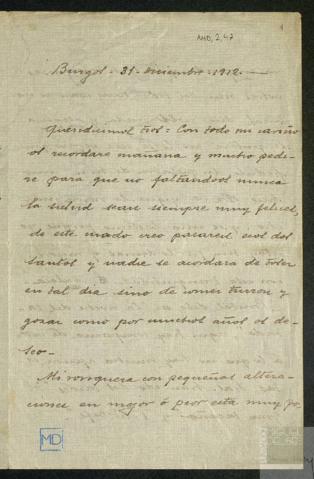 MD, 2, 47
Burgos - 31 - Diciembre - 1912 -
Queridisimos tios: Con todo mi cariño
os recordare mañana y mucho pedi-
re para que no faltandoos nunca
la salud sean siempre muy felices,
de este modo creo pasareis esos dos
Santos y nadie se acordara de toser
en tal dia sino de comer turron y
gozar como por muchos años os de-
seo.-
Mi ronquera con pequeñas altera-
ciones en mejor ó peor esta muy
MD